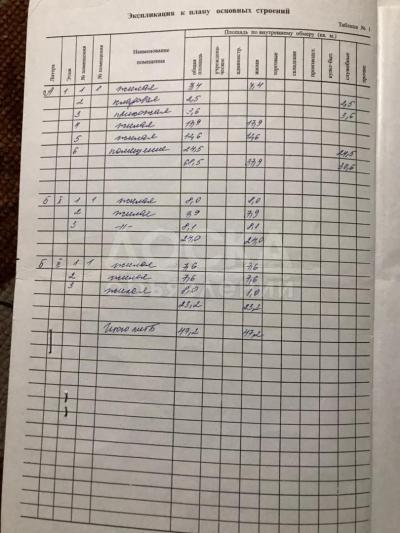 Экспликация к плану основных строений
Таблица № 1
Литера Этаж № помещения № помещения Наименование помещения Площадь по внутреннему обмеру (кв. м.)
общая площадь учрежденческая администр. жилая торговые складские производ. культ-быт. служебные прочие
А 1 1 1 жилая 9,4 9,4
2 кладовая 2,5 2,5
3 прихожая 3,6 3,6
4 жилая 13,9 13,9
5 жилая 14,6 14,6
6 помещение 24,5 24,5
68,5 37,9 30,6
Б I 1 1 жилая 8,0 8,0
2 жилая 7,9 7,9
3 -"- 8,1 8,1
24,0 24,0
Б II 1 1 жилая 7,6 7,6
2 жилая 7,6 7,6
3 жилая 8,0 8,0
23,2 23,2
Итого лит Б 47,2 47,2